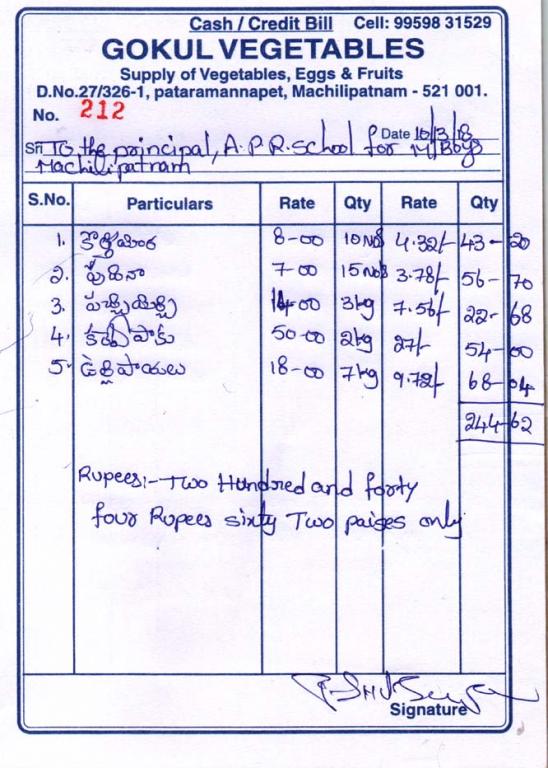 Cash / Credit Bill Cell: 99598 31529
GOKUL VEGETABLES
Supply of Vegetables, Eggs & Fruits
D.No.27/326-1, pataramannapet, Machilipatnam - 521 001.
No. 212
Date 10/3/18
Sri To the principal, A.P.R. school for M/Boys
Machilipatnam
S.No. Particulars Rate Qty Rate Qty
1. కొత్తిమీర 8-00 10 Nos 4.32/- 43-20
2. పుదీనా 7-00 15 Nos 3.78/- 56-70
3. 14-00 3kg 7.56/- 22-68
4. కరివేపాకు 50-00 2kg 27/- 54-00
5. ఉల్లిపాయలు 18-00 7kg 9.72/- 68-04
244-62
Rupees:- Two Hundred and forty
four Rupees sixty Two paises only
Signature